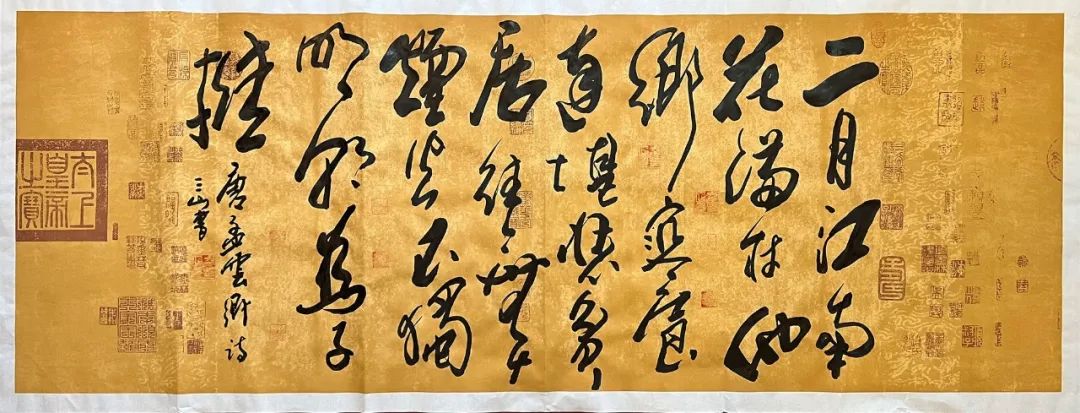 二月江南
花滿枝他
鄉寒食
遠堪悲貧
居往往無
煙火不獨
明朝為子
推
唐孟雲卿詩
三山書
太上
皇帝
之寶